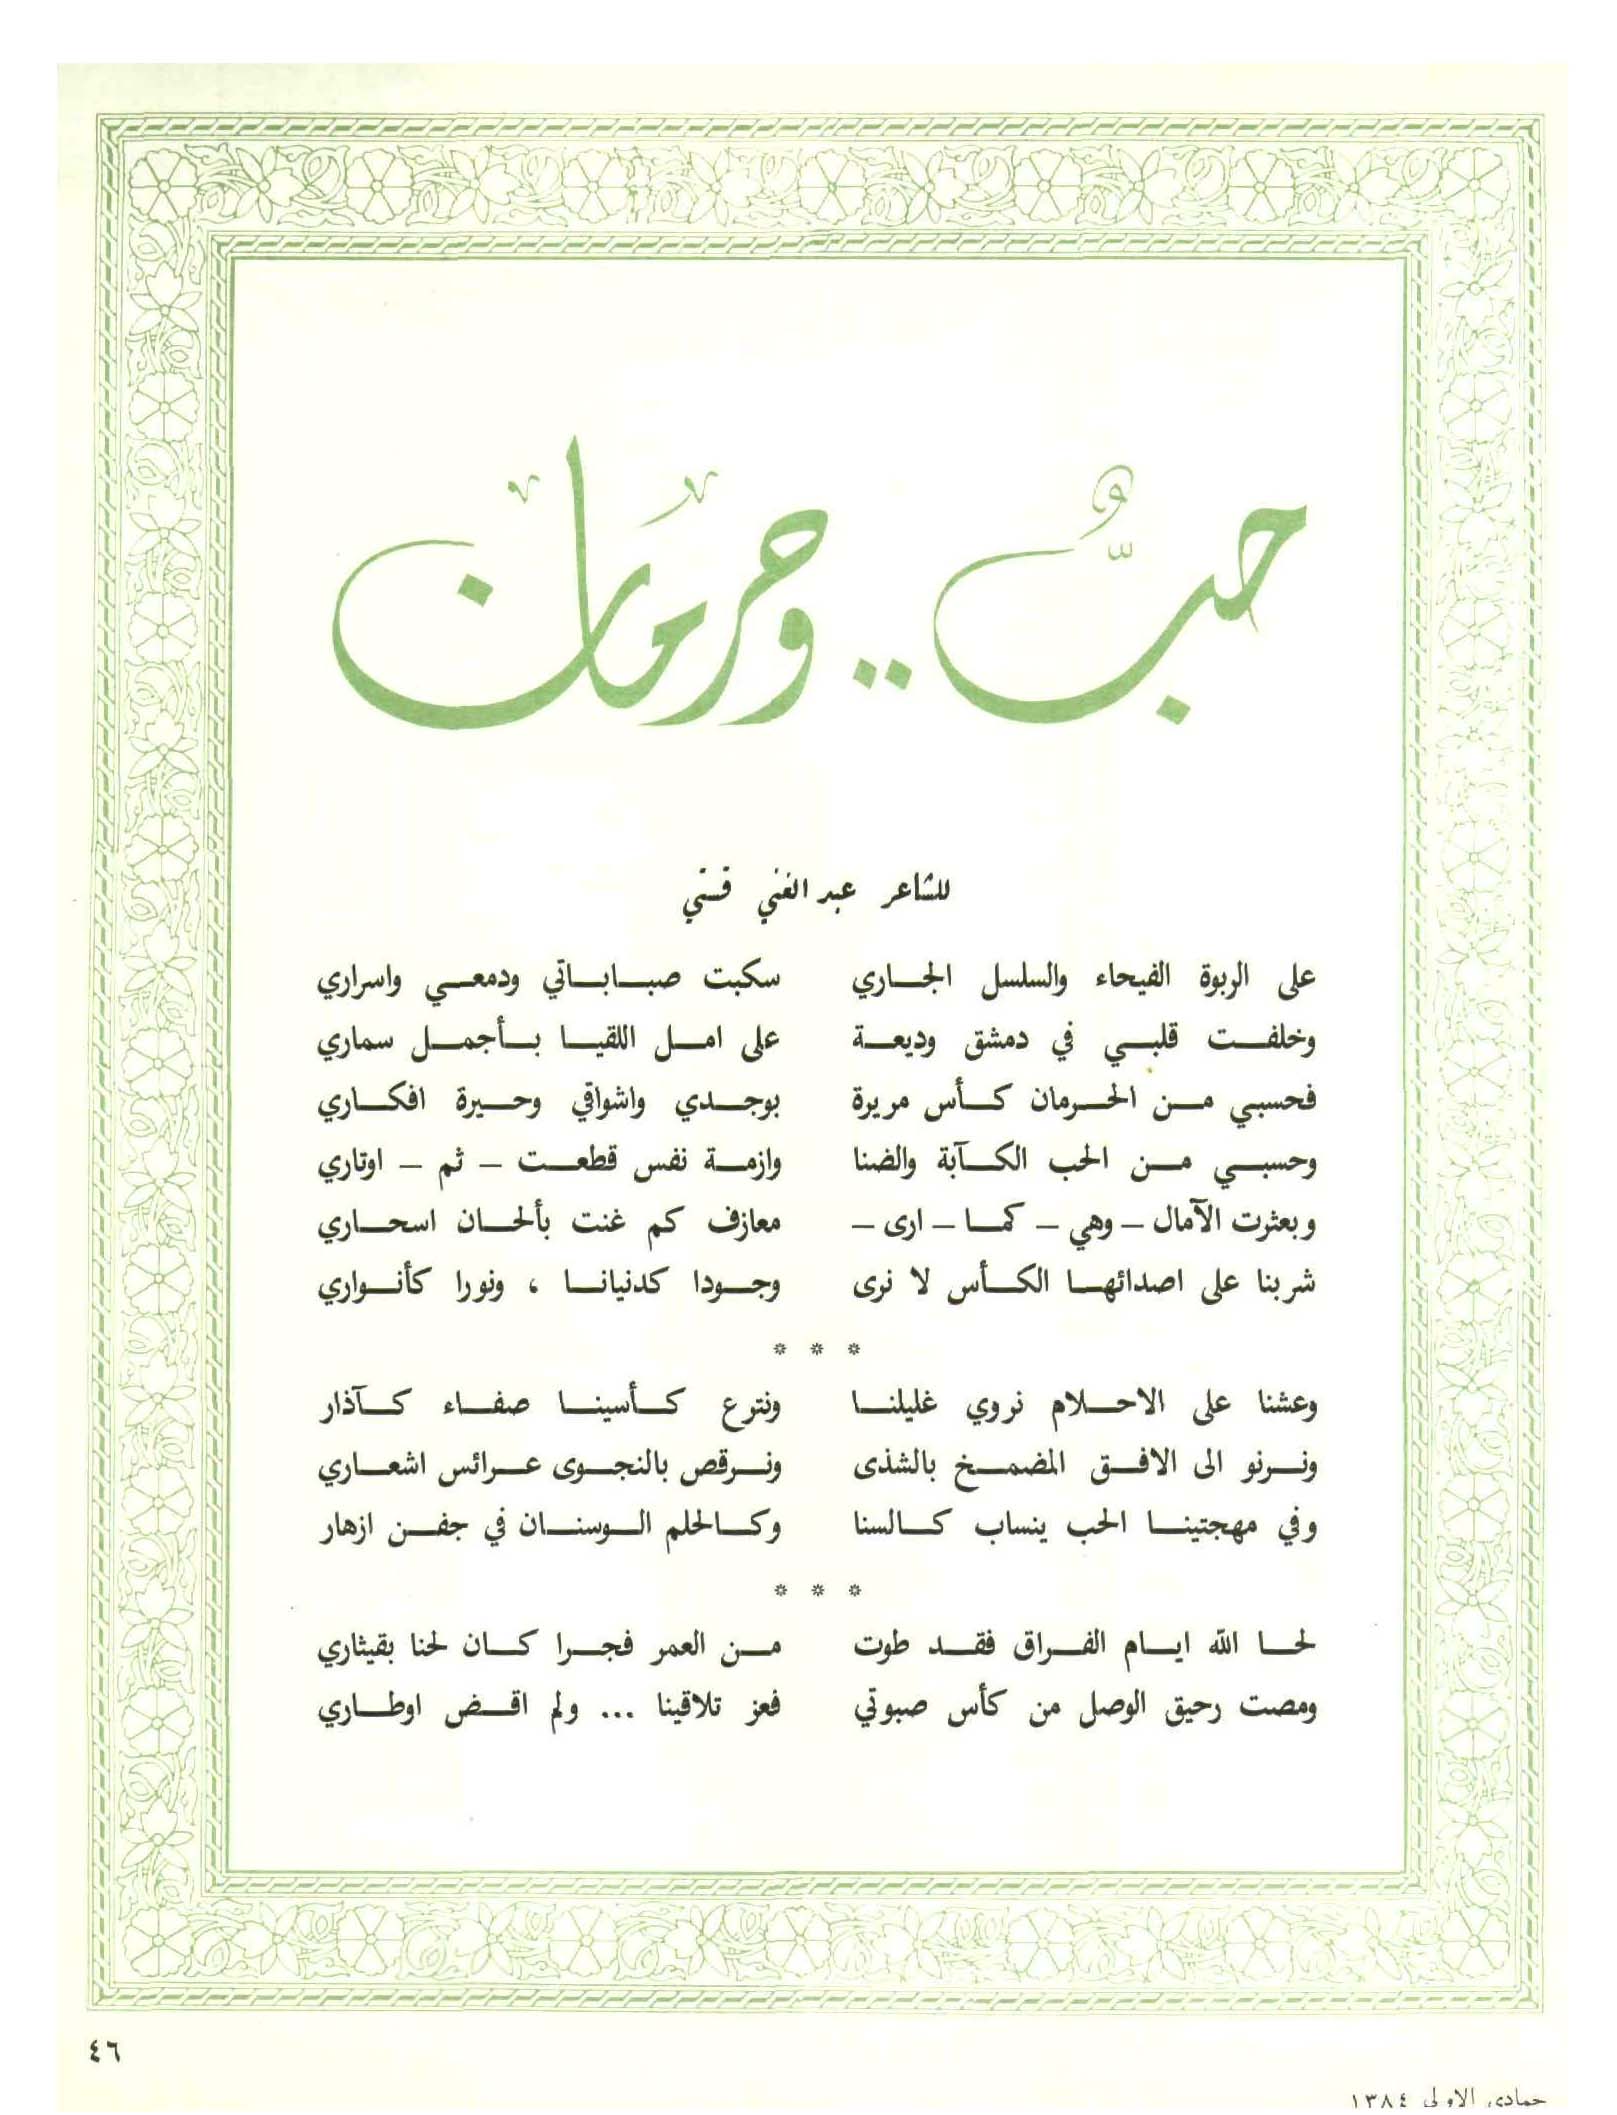 حبُّ .. وحرمان
للشاعر عبد الغني قستي
على الربوة الفيحاء والسلسل الجاري سكبت صباباتي ودمعي واسراري
وخلفت قلبي في دمشق وديعة على امل اللقيا بأجمل سماري
فحسبي من الحرمان كأس مريرة بوجدي واشواقي وحيرة افكاري
وحسبي من الحب الكآبة والضنا وازمة نفس قطعت – ثم – اوتاري
وبعثرت الآمال – وهي – كما – ارى – معازف كم غنت بألحان اسحاري
شربنا على اصدائها الكأس لا نرى وجودا كدنيانا ، ونورا كأنواري
* * *
وعشنا على الاحلام نروي غليلنا ونترع كأسينا صفاء كآذار
ونرنو الى الافق المضمخ بالشذى ونرقص بالنجوى عرائس اشعاري
وفي مهجتينا الحب ينساب كالسنا وكالحلم الوسنان في جفن ازهار
* * *
لحا الله ايام الفراق فقد طوت من العمر فجرا كان لحنا بقيثاري
ومصت رحيق الوصل من كأس صبوتي فعز تلاقينا ... ولم اقض اوطاري
٤٦
جمادى الاولى ١٣٨٤